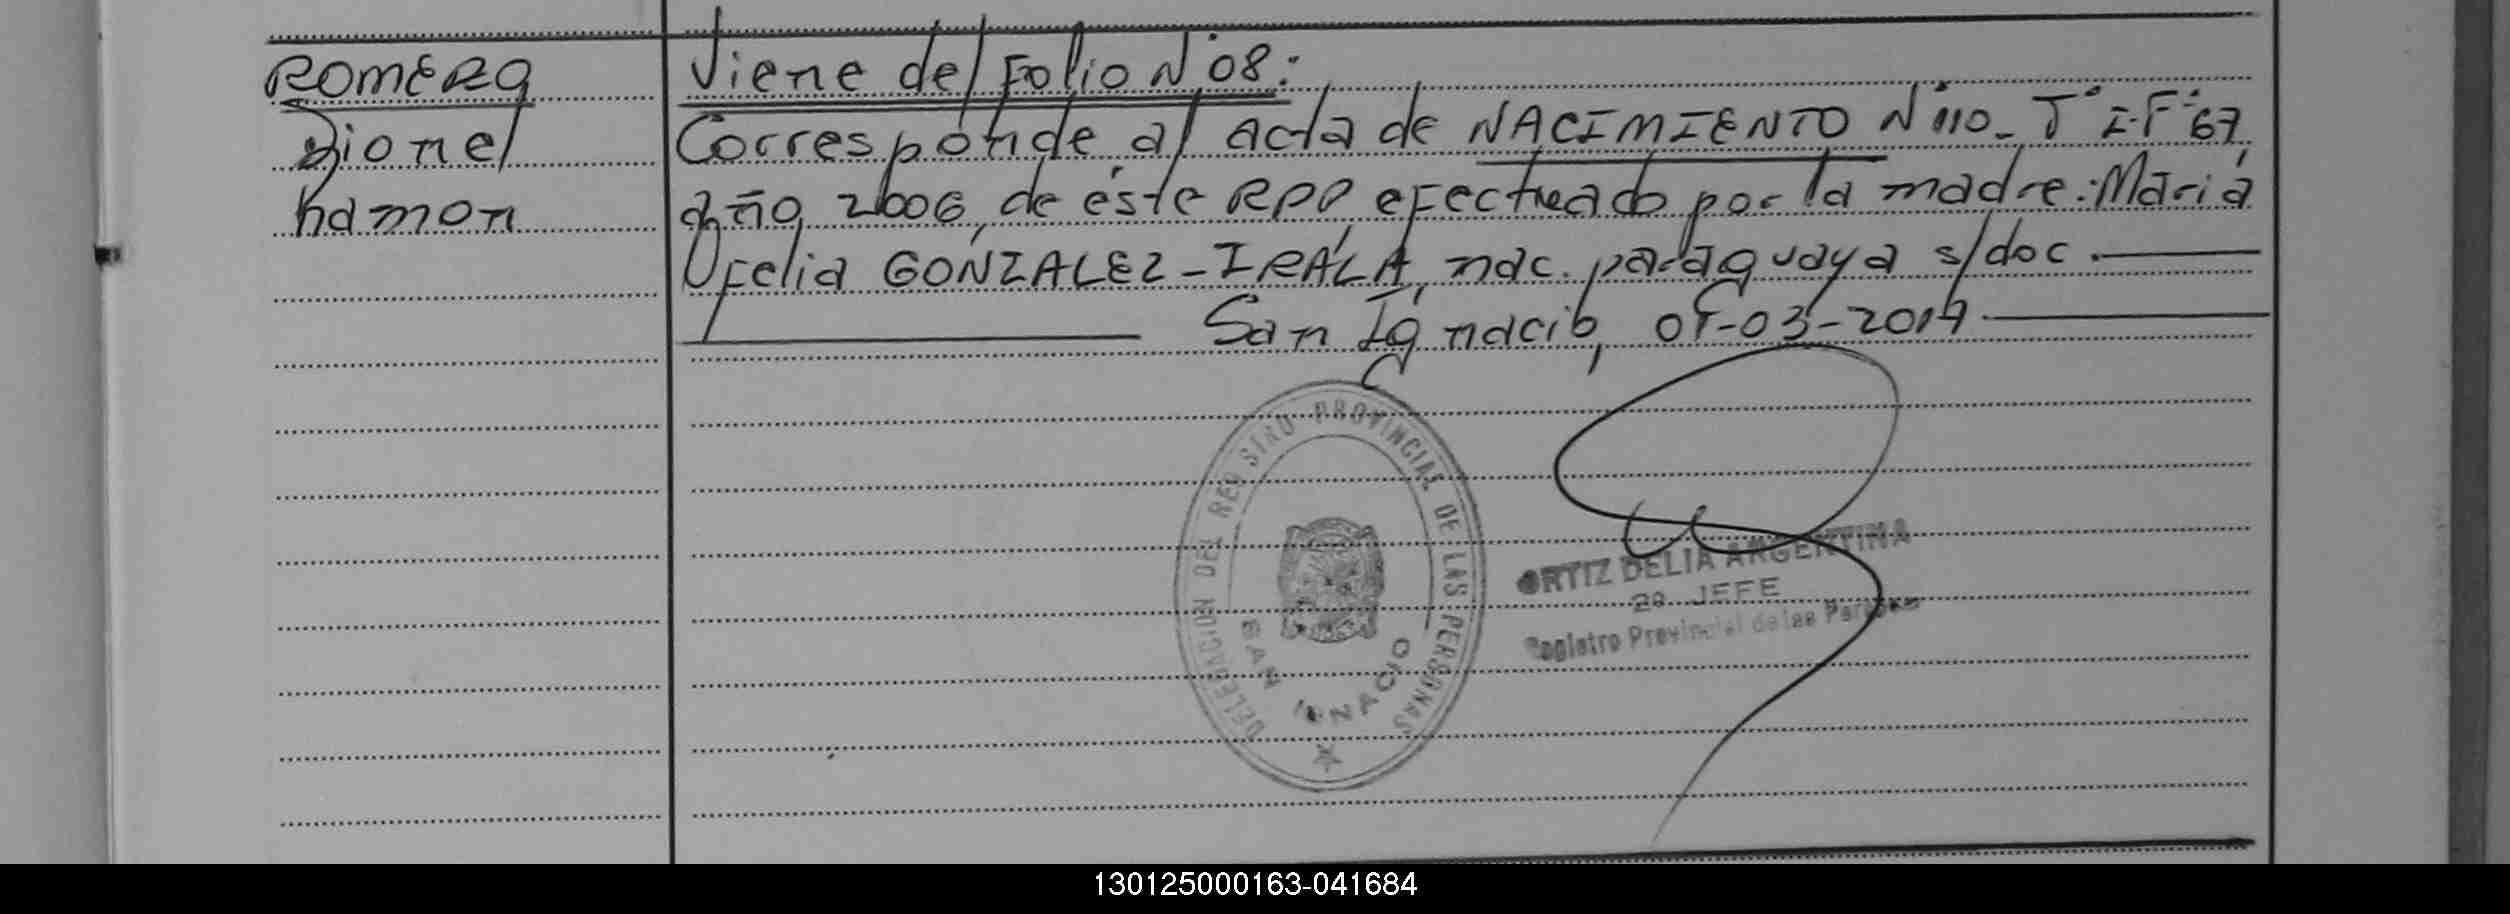 ROMERO
Dionel
Ramon
Viene del Folio N° 08:
Corresponde al acta de NACIMIENTO N° 110- T° I-F° 67,
año 2006, de éste RPP efectuado por la madre: María
Ofelia GONZALEZ-IRALA, nac. paraguaya s/doc.
San Ignacio, 01-03-2019
DELEGACION DEL REGISTRO PROVINCIAL DE LAS PERSONAS
SAN IGNACIO
ORTIZ DELIA ARGENTINA
2º JEFE
Registro Provincial de las Personas
130125000163-041684